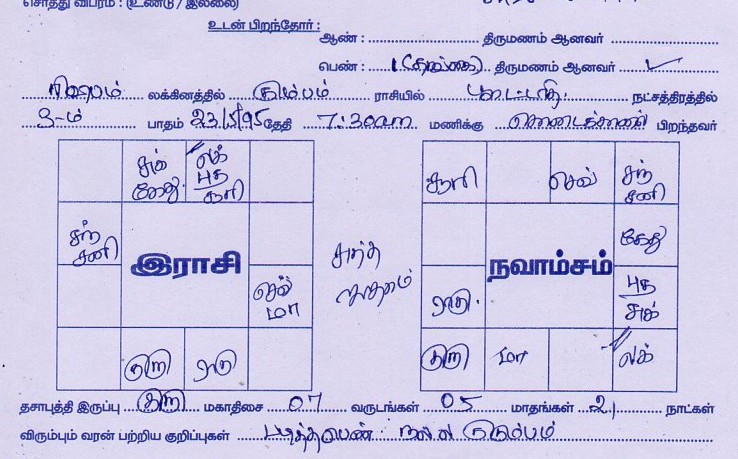 சொத்து விபரம் : (உண்டு / இல்லை)
உடன் பிறந்தோர் :
ஆண் : திருமணம் ஆனவர்
பெண் : 1 (தங்கை) திருமணம் ஆனவர் ✓
ரிஷபம் லக்கினத்தில் கும்பம் ராசியில் பூரட்டாதி நட்சத்திரத்தில்
3-ம் பாதம் 23/5/95 தேதி 7:30am மணிக்கு பிறந்தவர்
சுக் கேது லக் புத சூரி
சூரி செவ் சந் சனி
சந் சனி
இராசி
சுத்த ஜாதகம்
நவாம்சம்
கேது
செவ் மா
ராகு
புத சுக்
குரு ராகு
குரு மா லக்
தசாபுத்தி இருப்பு குரு மகாதிசை 07 வருடங்கள் 05 மாதங்கள் 21 நாட்கள்
விரும்பும் வரன் பற்றிய குறிப்புகள் படித்தபெண் நல்ல குடும்பம்